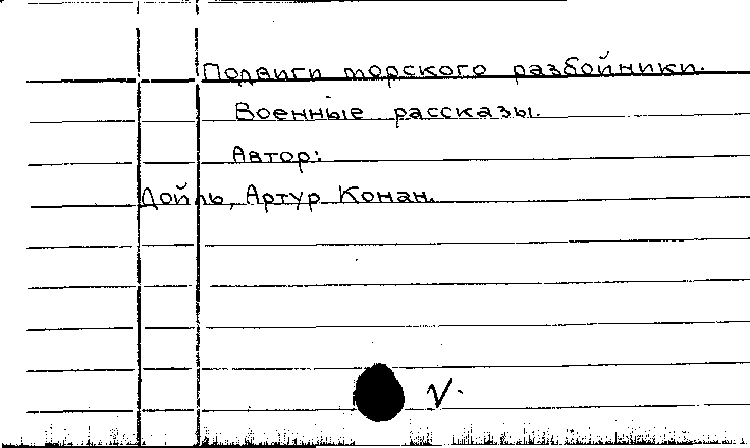 Подвиги морского разбойники.
Военные рассказы.
Автор:
Дойль, Артур Конан.
V.